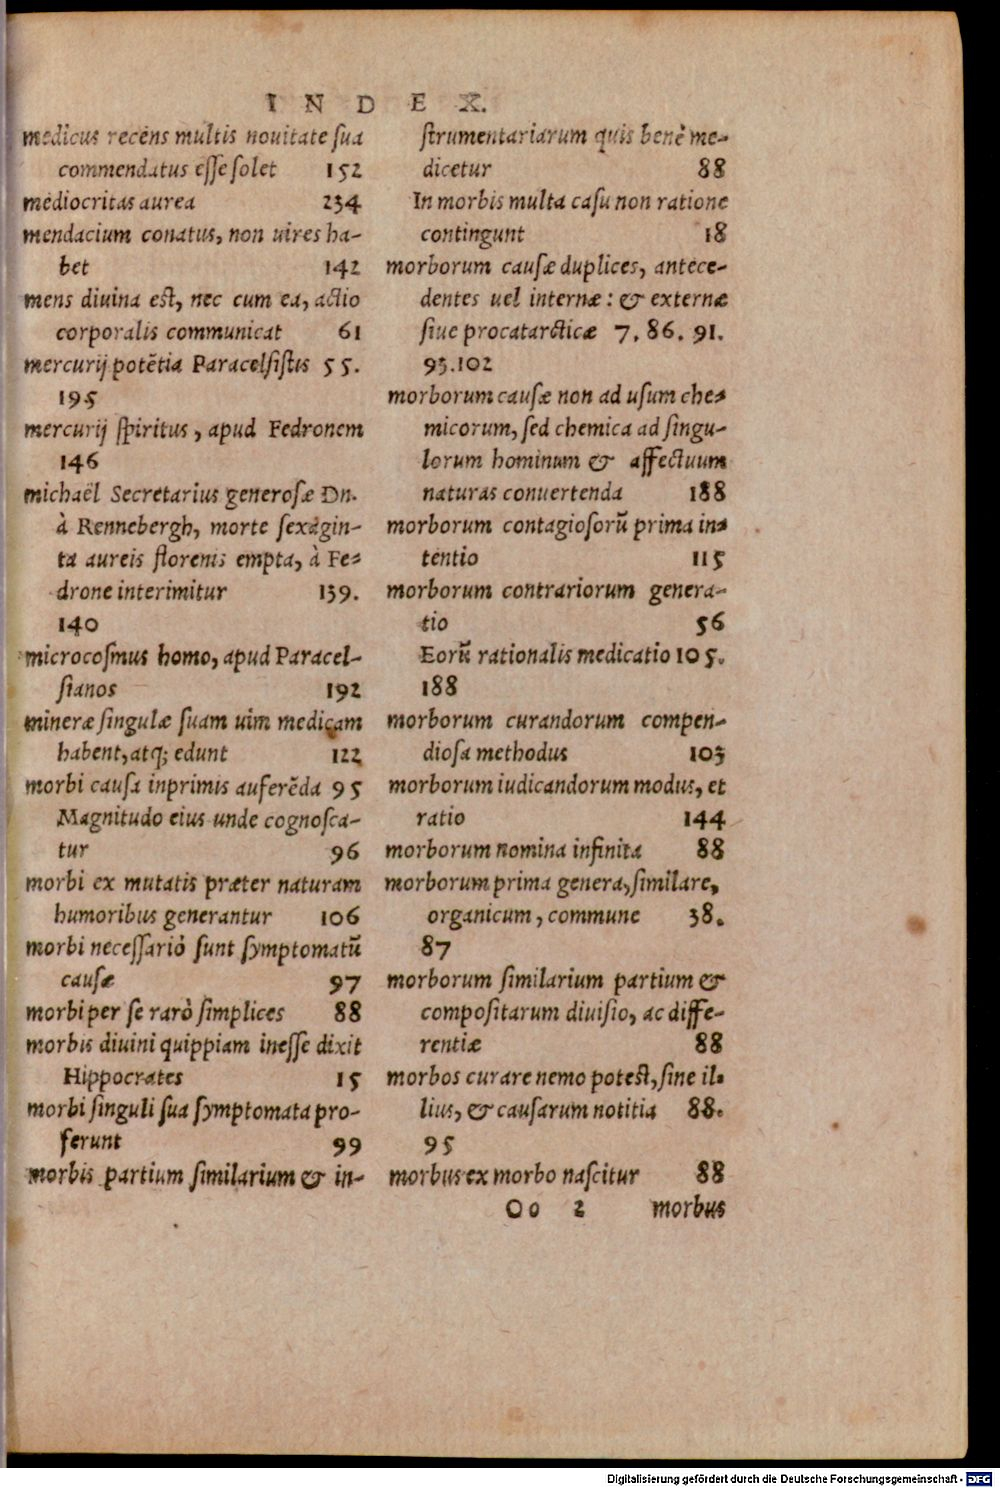 INDEX.
medicus recēns multis nouitate sua
commendatus esse solet 152
mediocritas aurea 234
mendacium conatus, non uires ha-
bet 142
mens diuina est, nec cum ea, actio
corporalis communicat 61
mercurij potētia Paracelsistis 55.
195
mercurij spiritus, apud Fedronem
146
michaël Secretarius generosæ Dn.
à Rennebergh, morte sexagin-
ta aureis florenis empta, à Fe-
drone interimitur 139.
140
microcosmus homo, apud Paracel-
sianos 192
mineræ singulæ suam uim medicam
habent, atq; edunt 122
morbi causa inprimis auferēda 95
Magnitudo eius unde cognosca-
tur 96
morbi ex mutatis præter naturam
humoribus generantur 106
morbi necessariò sunt symptomatū
causæ 97
morbi per se rarò simplices 88
morbis diuini quippiam inesse dixit
Hippocrates 15
morbi singuli sua symptomata pro-
ferunt 99
morbis partium similarium & in-
strumentariarum quis benè me-
dicetur 88
In morbis multa casu non ratione
contingunt 18
morborum causæ duplices, antece-
dentes uel internæ: & externæ
siue procatarcticæ 7. 86. 91.
93.102
morborum causæ non ad usum che-
micorum, sed chemica ad singu-
lorum hominum & affectuum
naturas conuertenda 188
morborum contagiosorū prima in-
tentio 115
morborum contrariorum genera-
tio 56
Eorū rationalis medicatio 105.
188
morborum curandorum compen-
diosa methodus 103
morborum iudicandorum modus, et
ratio 144
morborum nomina infinita 88
morborum prima genera, similare,
organicum, commune 38.
87
morborum similarium partium &
compositarum diuisio, ac diffe-
rentiæ 88
morbos curare nemo potest, sine il-
lius, & causarum notitia 88.
95
morbus ex morbo nascitur 88
Oo 2 morbus
Digitalisierung gefördert durch die Deutsche Forschungsgemeinschaft - DFG